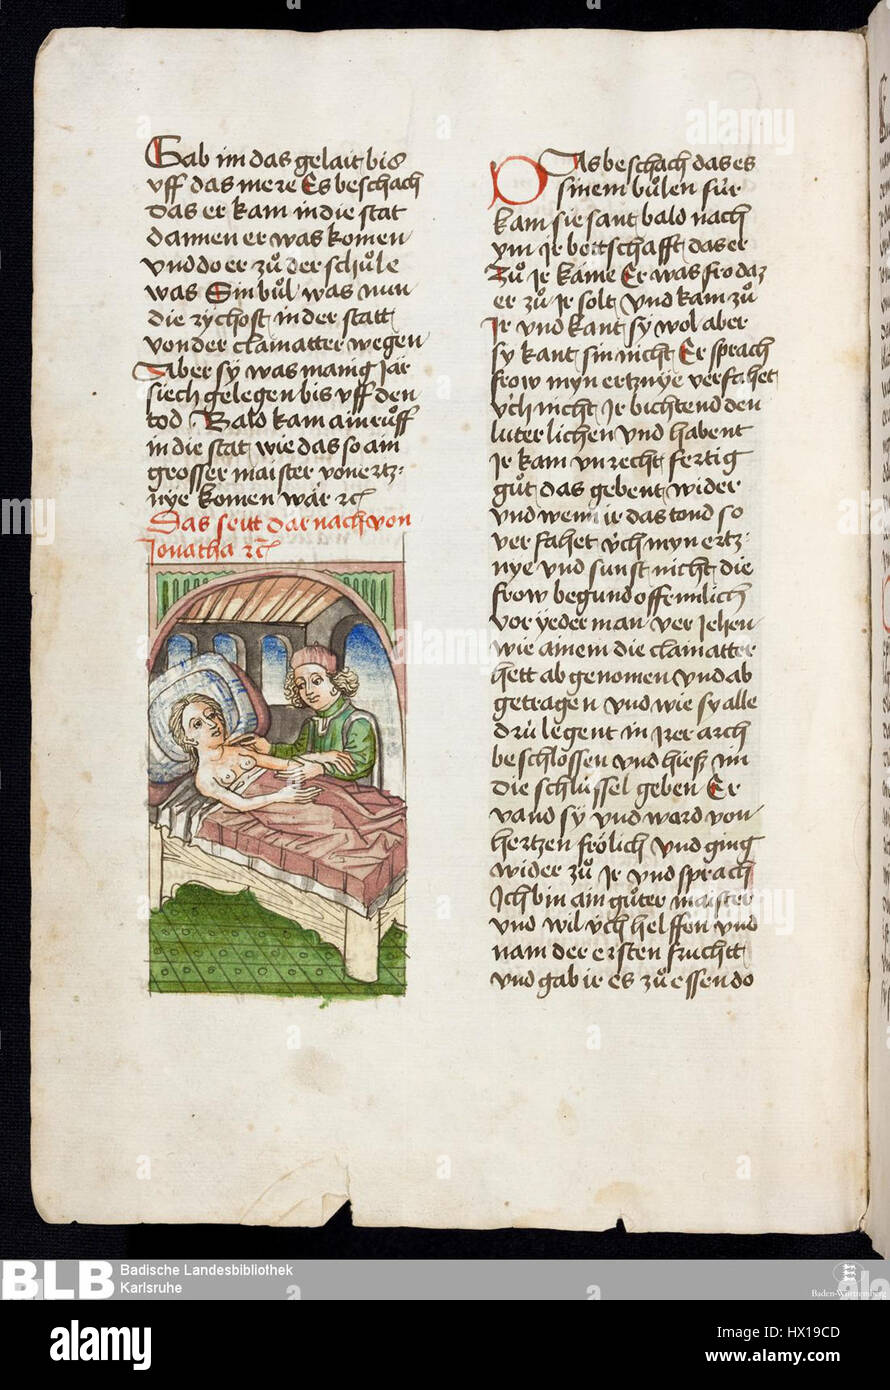 Gab im das gelait bis
vff das mere Es beschach
das er kam in die stat
dannen er was komen
vnd do er zuͦ der schuͦle
was Sin buͦl was nun
die rychost in der statt
von der clainatter wegen
Aber sy was manig jar
siech gelegen bis vff den
tod Bald kam ain ruͦff
in die stat wie das so ain
grosser maister von ertz⸗
nye komen wär ꝛc
Das seitt dar nach von
Jonatha ꝛc
Das beschach das es
sinem buͦlen für
kam sie sant bald nach
ym Jr bottschafft das er
zuͦ Jr käme Er was fro daz
er zuͦ Jr solt vnd kam zuͦ
Jr vnd kant sy wol aber
sy kant sin nicht Er sprach
frow myn ertznye verfahet
v́ch nicht Jr bichtend den
luterlichen vnd habent
Jr kain vnrecht fertig
guͦt das gebent wider
vnd wenn ir das tond so
verfahet v́ch myn ertz⸗
nye vnd sunst nicht die
frow begund offennlich
vor yederman veriehen
wie ainem die clainatter
hett abgenomen vnd ab
getragen vnd wie sy alle
drü legent in irer arch
beschlossen vnd hiesz im
die schlüssel geben Er
vand sy vnd ward von
hertzen frölich vnd ging
wider zuͦ ir vnd sprach
Ich bin ain guͦter maister
vnd wil v́ch helffen vnd
nam der ersten fruchtt
vnd gab ir es zuͦ essen do
BLB Badische Landesbibliothek
Karlsruhe
Baden-Württemberg
alamy
Image ID: HX19CD
www.alamy.com